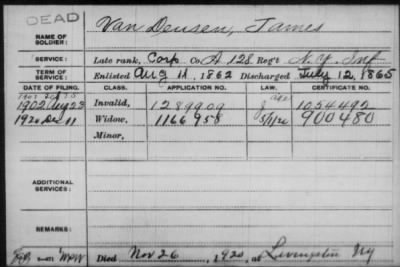 DEAD
Van Deusen, James
NAME OF SOLDIER:
SERVICE: Late rank, Corp Co. A 128 Reg't N.Y. Inf
TERM OF SERVICE: Enlisted Aug 11, 1862 Discharged July 12, 1865
DATE OF FILING. CLASS. APPLICATION NO. LAW. CERTIFICATE NO.
1902 Aug 23 Invalid, 1289909 1054492
1920 Dec 11 Widow, 1166958 900480
Minor,
ADDITIONAL SERVICES:
REMARKS:
Died Nov 26, 1920, at Livingston NY